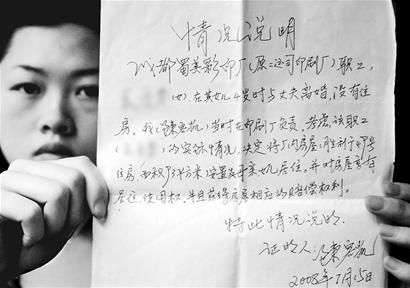 情况说明
成都蜀美彩印厂(原二还司印刷厂)职工,
(女),在其女儿4岁时与丈夫离婚,没有住
易。我(陈 )当时在印刷厂负责,考虑该职工
( )的实际情况,决定将厂内房屋,胜利 47号
住房,面积 平方米 安置及母亲女儿居住。并对房屋享有
居住,使用权,并且获得房屋相应的赔偿权利。
特此情况说明。
证明人:陈
2008年7月15日